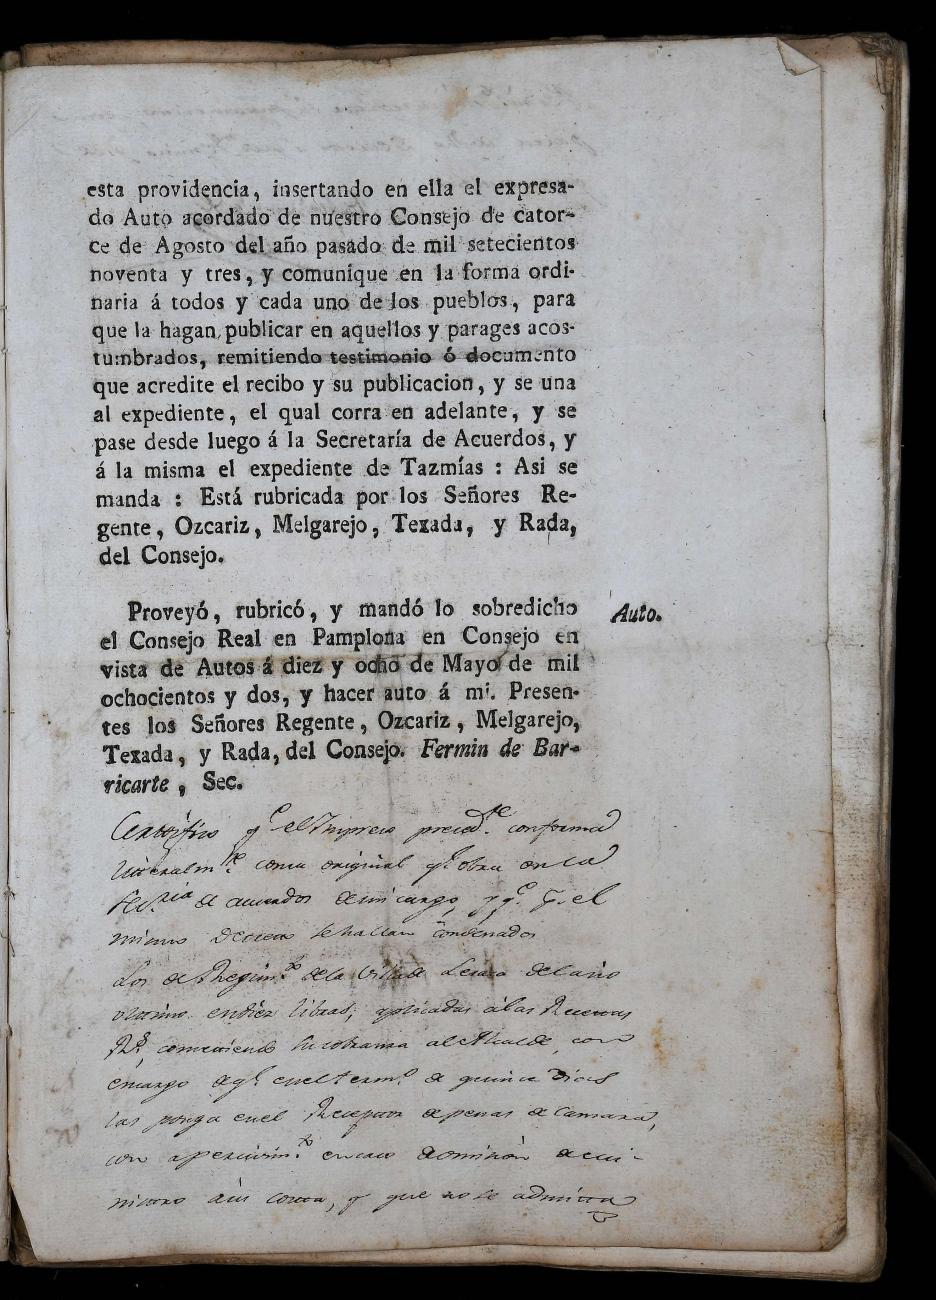 esta providencia, insertando en ella el expresa-
do Auto acordado de nuestro Consejo de cator-
ce de Agosto del año pasado de mil setecientos
noventa y tres, y comunique en la forma ordi-
naria á todos y cada uno de los pueblos, para
que la hagan publicar en aquellos y parages acos-
tumbrados, remitiendo testimonio ó documento
que acredite el recibo y su publicacion, y se una
al expediente, el qual corra en adelante, y se
pase desde luego á la Secretaría de Acuerdos, y
á la misma el expediente de Tazmías : Asi se
manda : Está rubricada por los Señores Re-
gente, Ozcariz, Melgarejo, Texada, y Rada,
del Consejo.
Proveyó, rubricó, y mandó lo sobredicho
Auto.
el Consejo Real en Pamplona en Consejo en
vista de Autos á diez y ocho de Mayo de mil
ochocientos y dos, y hacer auto á mi. Presen-
tes los Señores Regente, Ozcariz, Melgarejo,
Texada, y Rada, del Consejo. Fermin de Bar-
ricarte, Sec.
Certifico qe el Impreso precedte conforma
literalmte con su original qe obra en la
Secria de acuerdos de mi cargo, y qe p. el
mismo Decreto se hallan condenados
Los de Regimto de la Villa de Lesaca del año
ultimo en diez libras, aplicadas a las Recetas
Rs, cometiendo su cobranza al Alcalde, con
encargo de qe en el termo de quince dias
las ponga en el Receptor de penas de Camara,
con apercivimto en caso de omision de mi-
nistro a su costa, y que no se admitta